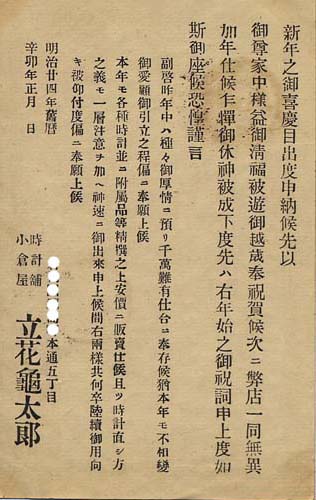 新年之御喜慶目出度申納候先以
御尊家中様益御淸福被遊御越歳奉祝賀候次ニ弊店一同無異
加年仕候乍憚御休神被成下度先ハ右年始之御祝詞申上度如
斯御座候恐惶謹言
副啓昨年中ハ種々御厚情ニ預リ千萬難有仕合ニ奉存候猶本年モ不相變
御愛顧御引立之程偏ニ奉願上候
本年モ各種時計並ニ附屬品等精撰之上安價ニ販賣仕候且ツ時計直シ方
之義モ一層注意ヲ加ヘ神速ニ御出來申上候間右兩樣共何卒陸續御用向
キ被仰付度偏ニ奉願上候
明治廿四年舊暦
辛卯年正月 日
本通五丁目
時計舖
小倉屋
立花龜太郎